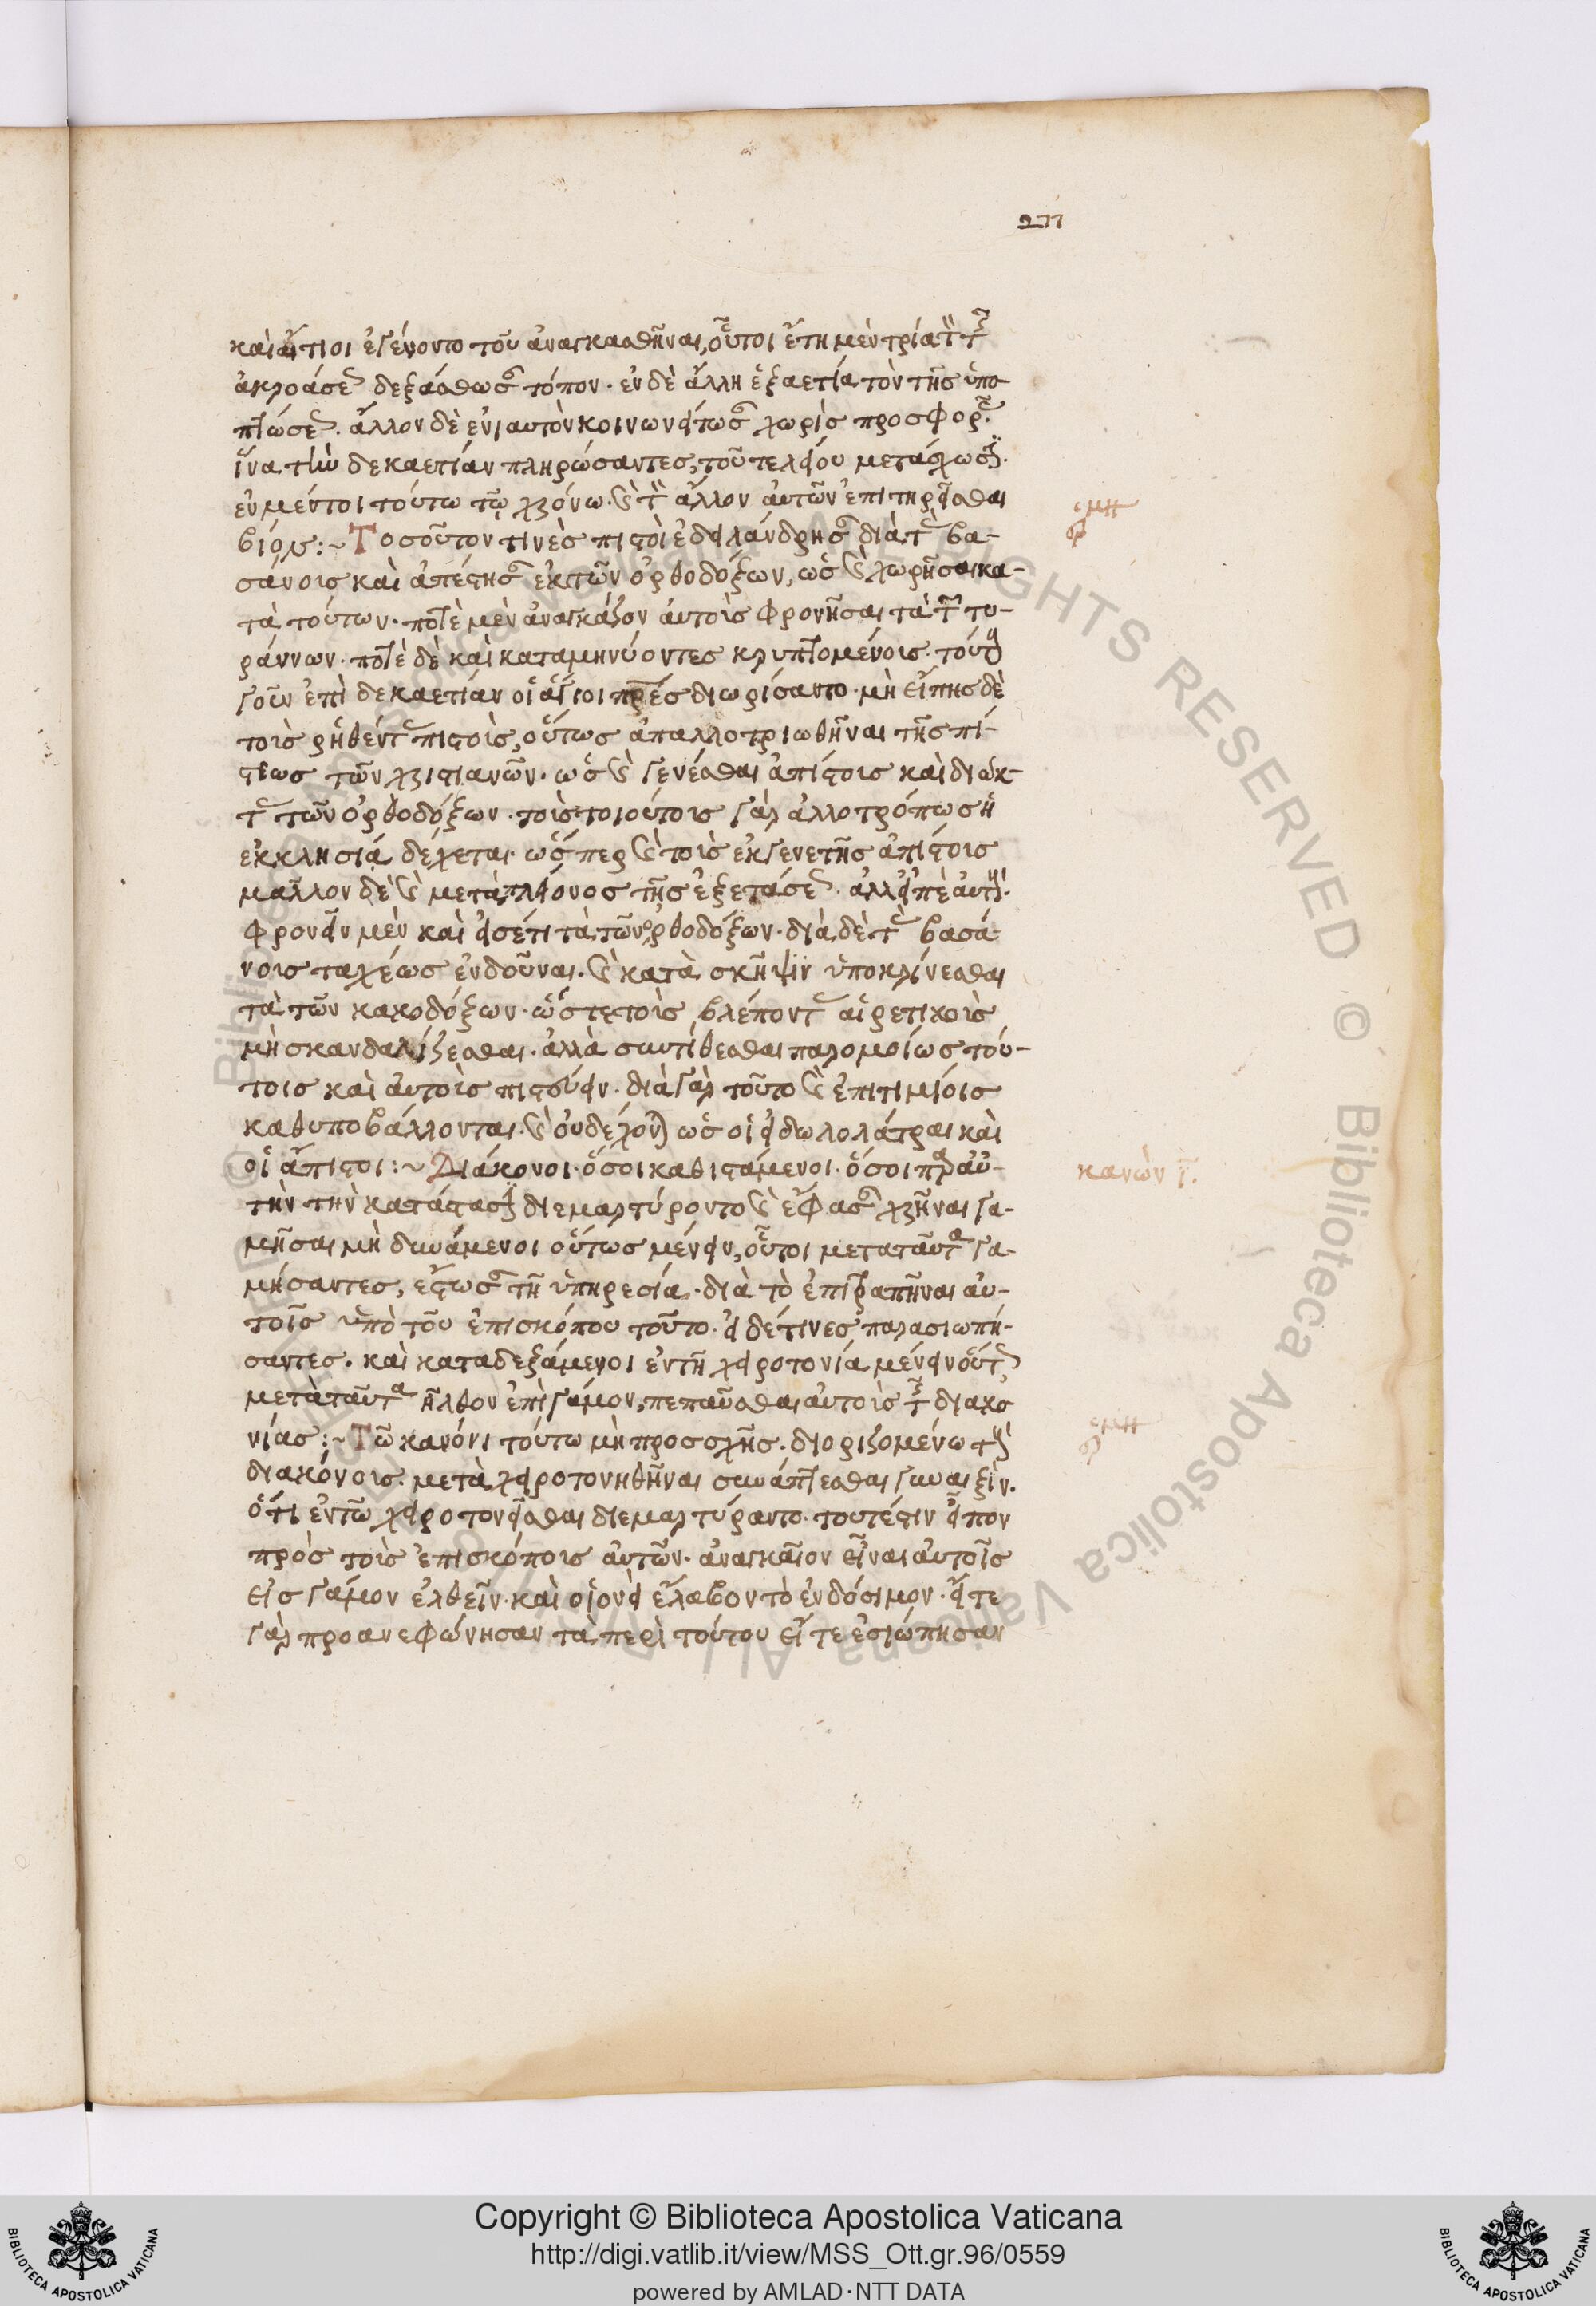 277
καὶ αἴτιοι ἐγένοντο τοῦ ἀναγκασθῆναι, οὗτοι ἔτη μὲν τρία τὸν τῆς
ἀκροάσεως δεξάσθωσαν τόπον· ἐν δὲ ἄλλη ἑξαετία τὸν τῆς ὑπο-
πτώσεως. ἄλλον δὲ ἐνιαυτὸν κοινωνείτωσαν χωρὶς προσφορᾶς
ἵνα τὴν δεκαετίαν πληρώσαντες, τοῦ τελείου μετάσχωσιν.
ἐν μέντοι τούτω τῷ χρόνω καὶ τὸν ἄλλον αὐτῶν ἐπιτηρεῖσθαι
βίον :~ Τοσοῦτον τινὲς πιστοὶ ἐδειλάνδρησαν διὰ τὰς βα-
σάνοις καὶ ἀπέστησαν ἐκ τῶν ὀρθοδόξων, ὡς καὶ χωρῆσαι κα-
τὰ τούτων. ποτὲ μὲν ἀναγκάζον αὐτοὶς φρονῆσαι τὰ τῶν τυ-
ράννων. ποτὲ δὲ καὶ καταμηνύοντες κρυπτομένοις. τούτους
γοῦν ἐπὶ δεκαετίαν οἱ ἅγιοι πρες διωρίσαντο. μὴ εἴπης δὲ
τοὶς ῥηθέντας πιστοὶς, οὕτως ἀπαλλοτριωθῆναι τῆς πί-
στεως τῶν χριστιανῶν. ὡς καὶ γενέσθαι ἀπίστοις καὶ διώκ-
τας τῶν ὀρθοδόξων. τοὶς τοιούτοις γὰρ ἀλλοτρόπως ἡ
ἐκκλησιά δέχεται. ὥσπερ καὶ τοὶς ἐκ γενετῆς ἀπίστοις
μᾶλλον δὲ καὶ μετὰ πλείονος τῆς ἐξετάσεως. ἀλλ' εἰπὲ αὐτοὺς.
φρονεῖν μὲν καὶ εἰσέτι τὰ τῶν ὀρθοδόξων. διὰ δὲ τὰς βασά-
νοις ταχέως ἐνδοῦναι. καὶ κατὰ σκῆψιν ὑποκρίνεσθαι
τὰ τῶν κακοδόξων. ὥστε τοὶς βλέποντας αἱρετικοὶς
μὴ σκανδαλίζεσθαι. ἀλλὰ συντίθεσθαι παρομοίως τού-
τοις καὶ αὐτοὶς πιστεύειν. διὰ γὰρ τοῦτο καὶ ἐπιτιμίοις
καθυποβάλλονται. καὶ οὐ δέχονται ὡς οἱ εἰδωλολάτραι καὶ
οἱ ἄπιστοι :~ Διάκονοι. ὅσοι καθιστάμενοι. ὅσοι παρ' αὐ-
τὴν τὴν κατάστασιν διεμαρτύροντο καὶ ἔφασαν χρῆναι γα-
μῆσαι μὴ δυνάμενοι οὕτως μένειν, οὗτοι μετα ταῦτα γα-
μήσαντες, ἔστωσαν τῆ ὑπηρεσία. διὰ τὸ ἐπιτραπῆναι αὐ-
τοῖς ὑπὸ τοῦ ἐπισκόπου τοῦτο. εἰ δέ τινες παρασιωπή-
σαντες. καὶ καταδεξάμενοι ἐν τῆ χειροτονία μένειν οὕτως
μετὰ ταῦτα ἦλθον ἐπὶ γάμον, πεπαῦσθαι αὐτοὶς τῆς διακο
νίας :~ Τῶ κανόνι τούτω μὴ προσσχῆς. διοριζομένω τοὺς
διακόνοις. μετὰ χειροτονηθῆναι συνάπτεσθαι γυναιξίν.
ὅτι ἐν τῶ χειροτονεῖσθαι διεμαρτύραντο. τουτέστιν εἶπον
πρὸς τοὶς ἐπισκόποις αὐτῶν. ἀναγκαῖον εἶναι αὐτοῖς
εἰς γάμον ἐλθεῖν. καὶ οἱονεὶ ἔλαβον τὸ ἐνδόσιμον. εἴτε
γὰρ προανεφώνησαν τὰ περὶ τούτου εἴτε ἐσιώπησαν
ἑρμη
κανὼν ι.
ἑρμη
Copyright © Biblioteca Apostolica Vaticana
http://digi.vatlib.it/view/MSS_Ott.gr.96/0559
powered by AMLAD·NTT DATA
BIBLIOTECA APOSTOLICA VATICANA
BIBLIOTECA APOSTOLICA VATICANA